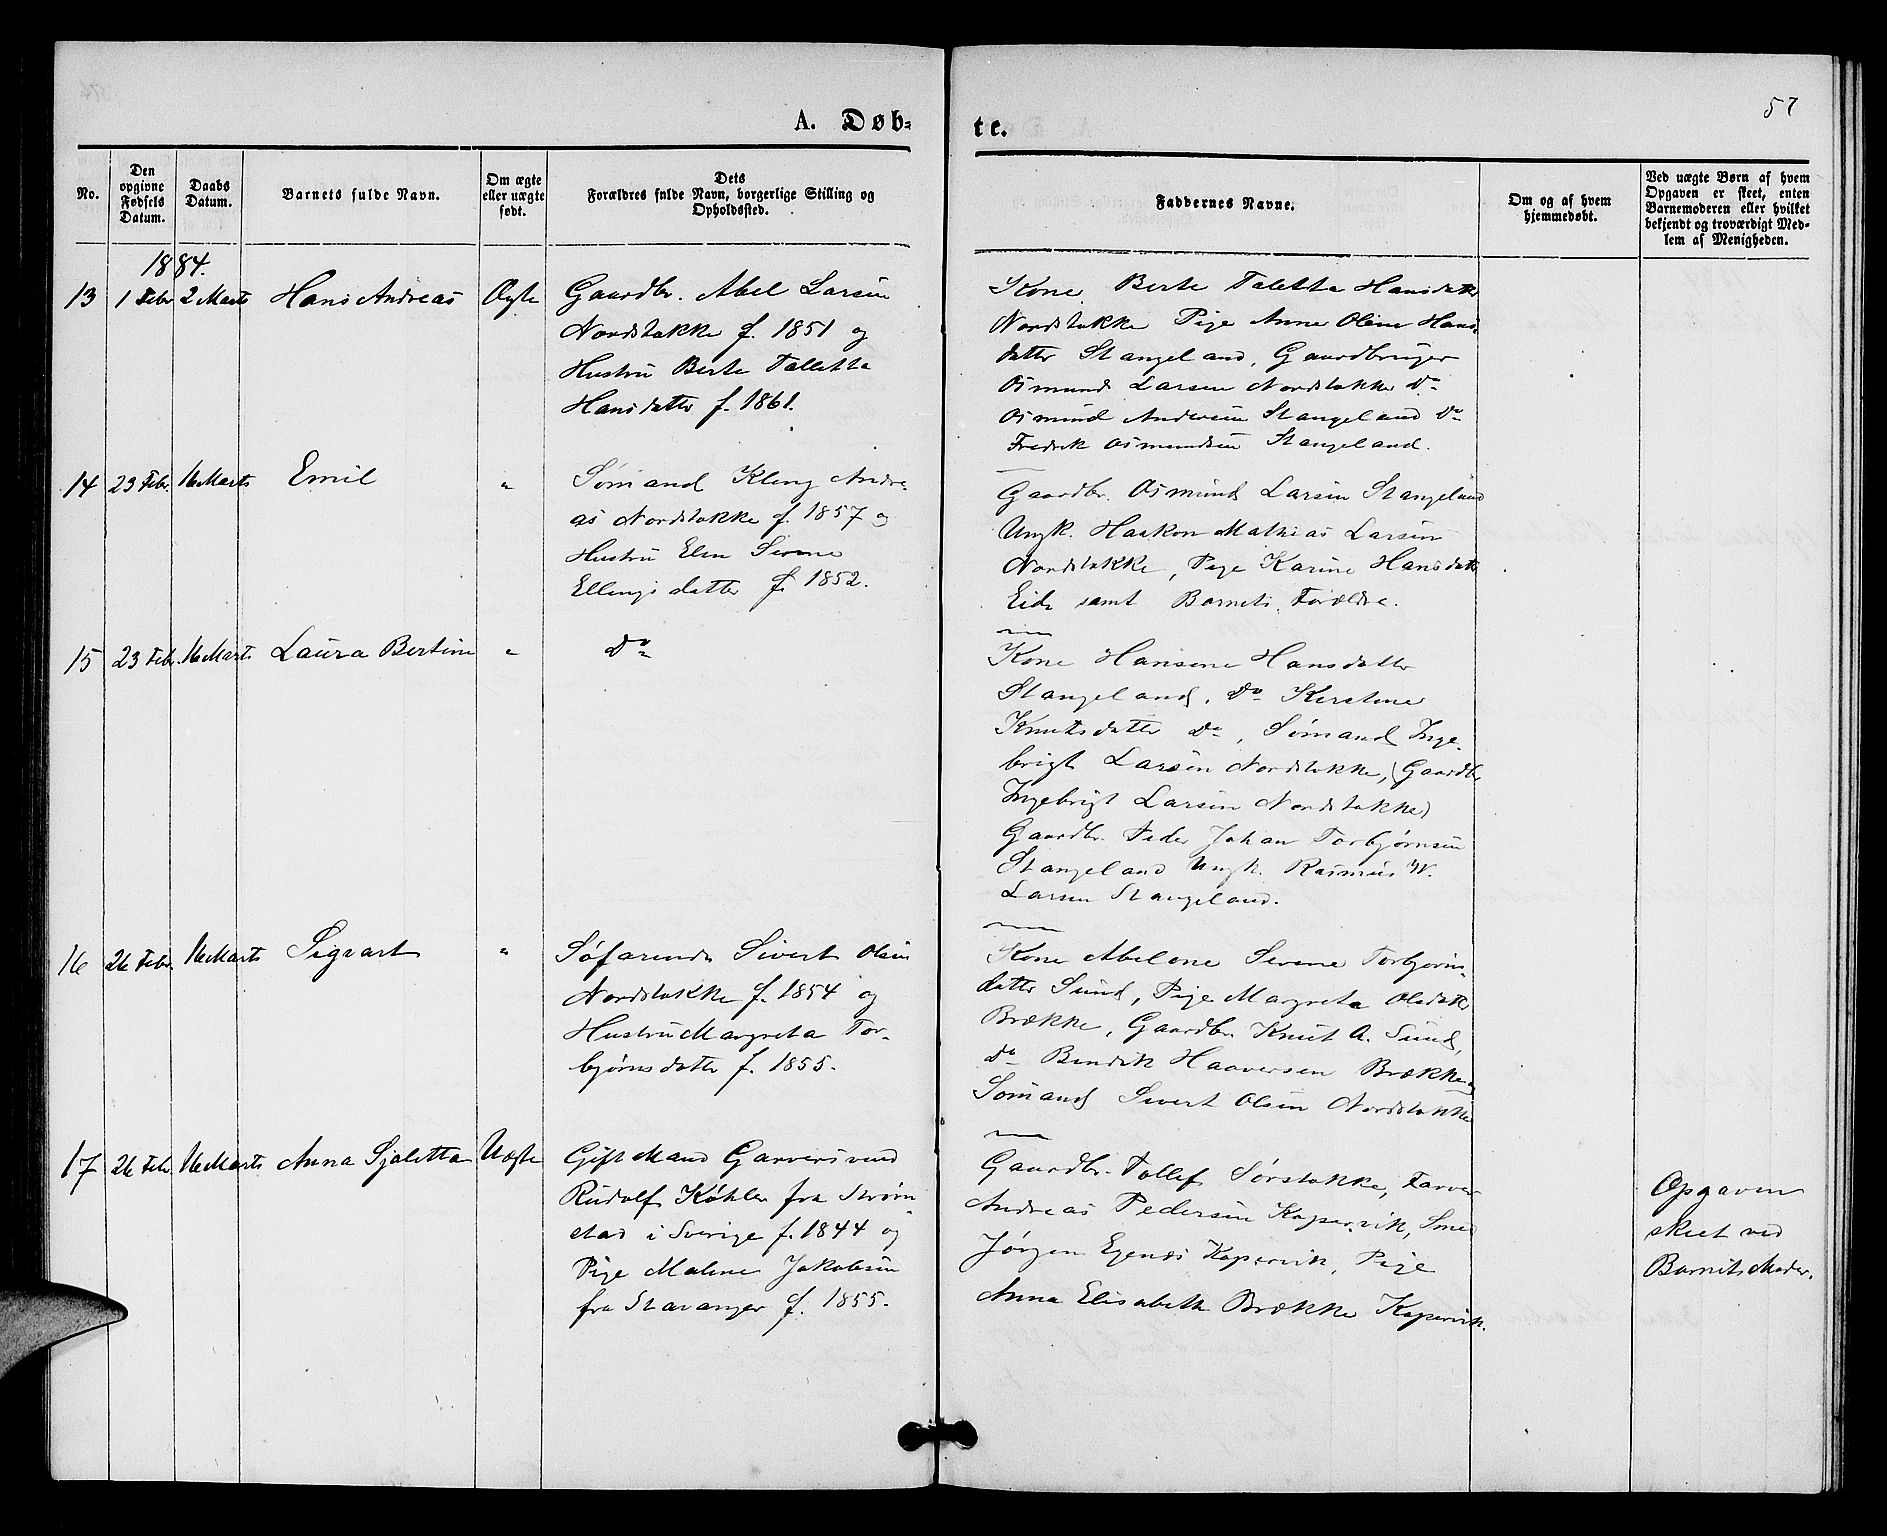 57
A. Døb-
te.
No.
Den opgivne Fødsels Datum.
Daabs Datum.
Barnets fulde Navn.
Om ægte eller uægte født.
Dets Forældres fulde Navn, borgerlige Stilling og Opholdssted.
Faddernes Navne.
Om og af hvem hjemmedøbt.
Ved uægte Børn af hvem Opgaven er skeet, enten Barnemoderen eller hvilket bekjendt og troværdigt Medlem af Menigheden.
1884.
13 1 Febr 2 Marts Hans Andreas Ægte Gaardbr. Abel Larsen
Nordstokke f. 1851 og
Hustru Berte Talletta
Hansdatter f. 1861.
Kone Berte Taletta Hansdatter
Nordstokke Pige Anne Oline Hans-
datter Stangeland, Gaardbruger
Osmund Larsen Nordstokke Do
Osmund Andersen Stangeland Do
Fredrik Osmundsen Stangeland.
14 23 Febr. 16 Marts Emil " Sømand Kleng Andre-
as Nordstokke f. 1857 og
Hustru Elen Serine
Ellingsdatter f. 1852.
Gaardbr. Osmund Larsen Stangeland
Ungk. Haakon Mathias Larsen
Nordstokke, Pige Karine Hansdatter
Eide samt Barnets Forældre.
15 23 Febr. 16 Marts Laura Bertine " Do
Kone Hansine Hansdatter
Stangeland, Do Kirstine
Knutsdatter Do, Sømand Inge-
brigt Larsen Nordstokke, (Gaardbr.
Ingebrigt Larsen Nordstokke)
Gaardbr. Peder Johan Torbjørnsen
Stangeland Ungk. Rasmus W.
Larsen Stangeland.
16 26 Febr. 16 Marts Sigvart " Søfarende Sivert Olsen
Nordstokke f. 1854 og
Hustru Margreta Tor-
bjørnsdatter f. 1855.
Kone Abelone Serene Torbjørns-
datter Sund, Pige Margreta Olsdatter
Brække, Gaardbr. Knut A. Sund,
Do Bendik Haaversen Brække og
Sømand Sivert Olsen Nordstokke
17 26 Febr. 16 Marts Anna Sjaletta Uægte Gift Mand Garversvend
Rudolf Køhler fra Strøm-
stad i Sverige f. 1844 og
Pige Maline Jakobsen
fra Stavanger f. 1855.
Gaardbr. Tollef Sørstokke, Farver
Andreas Pedersen Kopervik, Smed
Jørgen Egenæs Kopervik, Pige
Anna Elisabeth Brække Kopervik.
Opgaven
skeet ved
Barnets Moder.